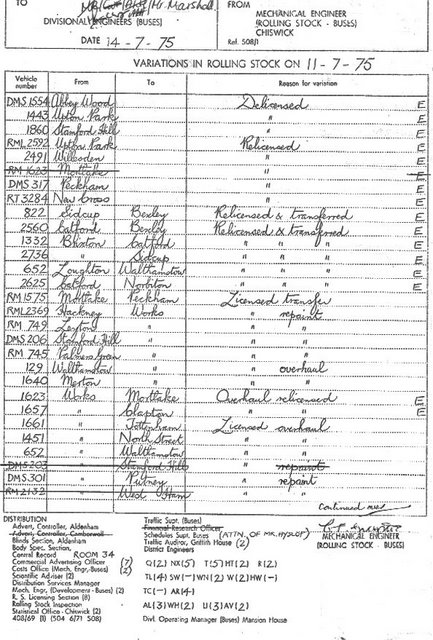 TO
DIVISIONAL ENGINEERS (BUSES)
Mr. Marshall
DATE 14-7-75
FROM
MECHANICAL ENGINEER
(ROLLING STOCK - BUSES)
CHISWICK
Ref. 508/1
VARIATIONS IN ROLLING STOCK ON 11-7-75
Vehicle number From To Reason for variation
DMS 1554 Abbey Wood Delicensed E
1443 Upton Park " E
1860 Stamford Hill " E
RML 2592 Upton Park Relicensed E
2491 Willesden " E
RM 1623 Mortlake "
DMS 317 Peckham " E
RT 3284 New Cross " E
822 Sidcup Bexley Relicensed & transferred E
2560 Catford Bexley Relicensed & transferred E
1332 Brixton Catford " " " E
2736 " Sidcup " " " E
652 Loughton Walthamstow " " " E
2625 Catford Norbiton " " " E
RM 1575 Mortlake Peckham Licensed transfer
RML 2369 Hackney Works " repaint
RM 749 Leyton " " "
DMS 206 Stamford Hill " " "
RM 745 Palmers Green " " "
129 Walthamstow " " overhaul
1640 Merton " " "
1623 Works Mortlake Overhaul relicensed E
1657 " Clapton " " E
1661 " Tottenham Licensed overhaul
1451 " North Street " "
652 " Walthamstow " "
DMS 203 " Stamford Hill " repaint
DMS 301 " Putney " repaint
RM 2132 " West Ham " "
Continued over
DISTRIBUTION
Advert. Controller, Aldenham
Advert. Controller, Camberwell
Blinds Section, Aldenham
Body Spec. Section,
Central Record ROOM 34
Commercial Advertising Officer (7)
Costs Office (Mech. Engr.-Buses) (2)
Scientific Adviser (2)
Distribution Services Manager
Mech. Engr. (Development - Buses) (2)
R. S. Licensing Section (8)
Rolling Stock Inspection
Statistical Office - Chiswick (2)
408/69 (1) (504 6/71 508)
Traffic Supt. (Buses)
Financial Research Officer
Schedules Supt. (Buses) (ATTN. OF MR. HYSLOP)
Traffic Auditor, Griffith House (2)
District Engineers
Q(2) NX(5) T(5) HT(2) R(2)
TL(4) SW(-) WN(2) W(2) HW(-)
TC(-) AR(4)
AL(3) WH(2) U(3) AV(2)
Divl. Operating Manager (Buses) Mansion House
MECHANICAL ENGINEER
(ROLLING STOCK - BUSES)